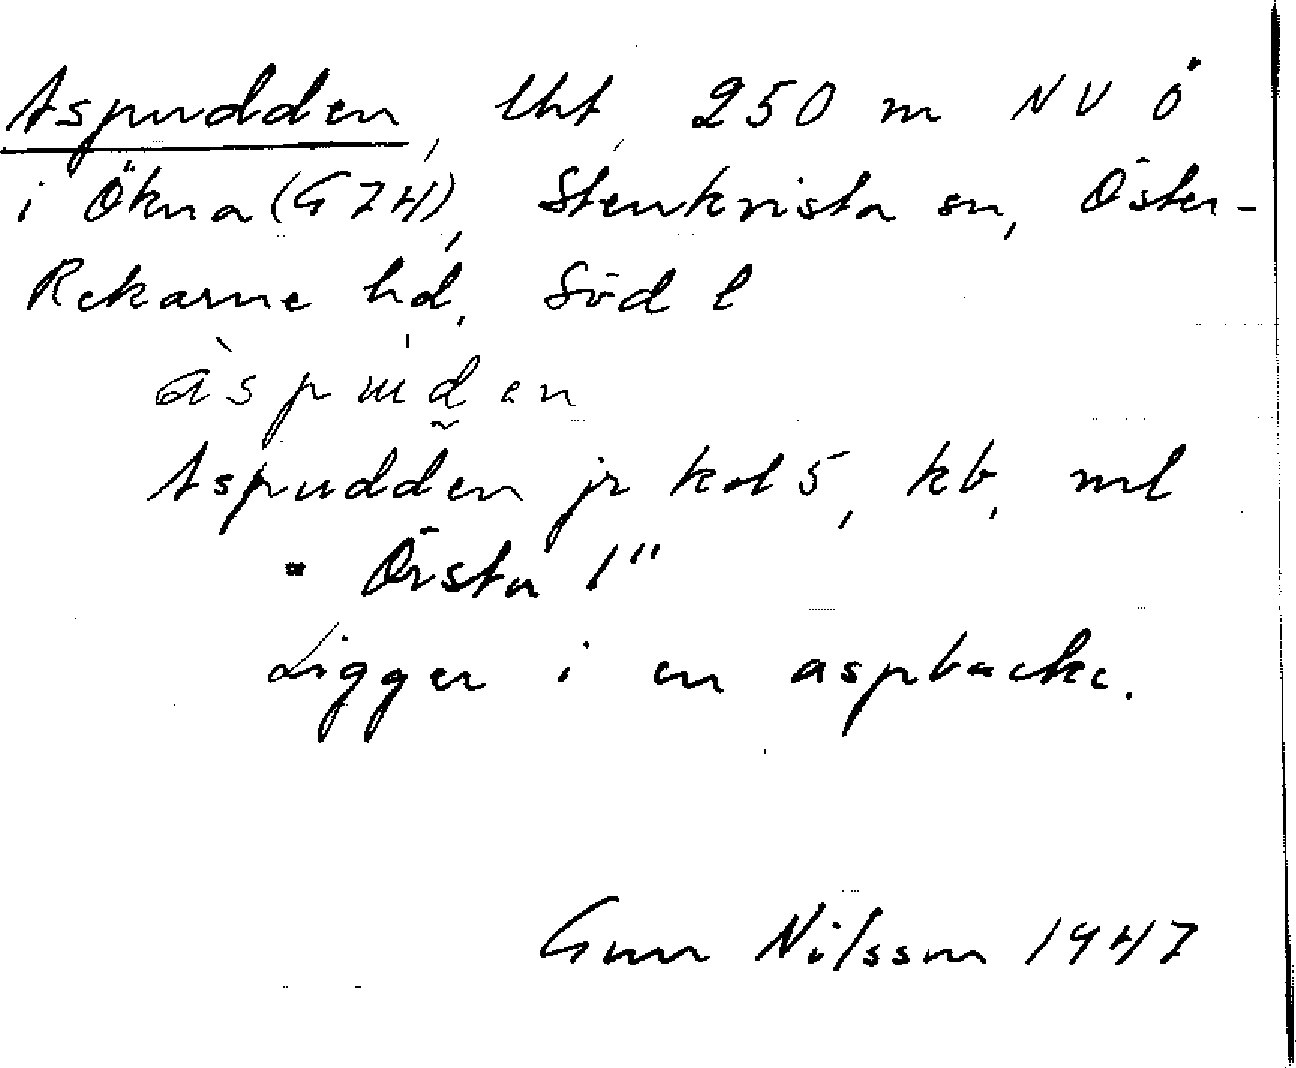 Aspudden, lht, 250 m NV Ö
i Ökna (G 74), Stenkvista sn, Öster-
Rekarne hd, Söd l
àspuden
Aspudden jr kol 5, kb, ml
" Örsta 1"
Ligger i en aspbacke.
Gun Nilsson 1947